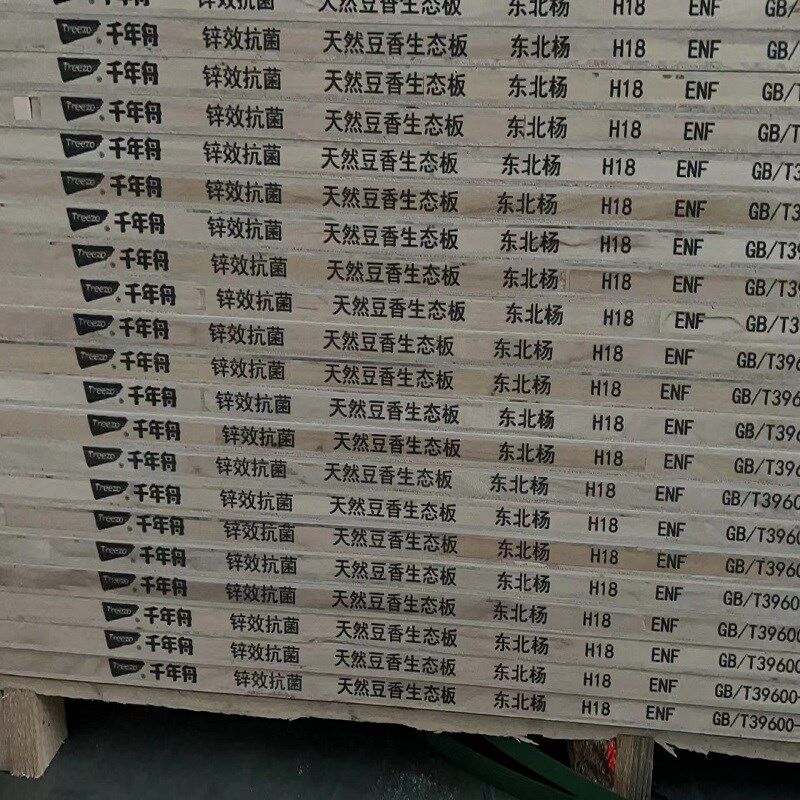 锌效抗菌 天然豆香生态板 东北杨 H18 ENF GB/
Treezo 千年舟 锌效抗菌 天然豆香生态板 东北杨 H18 ENF GB/
Treezo 千年舟 锌效抗菌 天然豆香生态板 东北杨 H18 ENF GB/
Treezo 千年舟 锌效抗菌 天然豆香生态板 东北杨 H18 ENF GB/T
Treezo 千年舟 锌效抗菌 天然豆香生态板 东北杨 H18 ENF GB/T3
Treezo 千年舟 锌效抗菌 天然豆香生态板 东北杨 H18 ENF GB/T3
Treezo 千年舟 锌效抗菌 天然豆香生态板 东北杨 H18 ENF GB/T39
Treezo 千年舟 锌效抗菌 天然豆香生态板 东北杨 H18 ENF GB/T39
Treezo 千年舟 锌效抗菌 天然豆香生态板 东北杨 H18 ENF GB/T39
Treezo 千年舟 锌效抗菌 天然豆香生态板 东北杨 H18 ENF GB/T396
Treezo 千年舟 锌效抗菌 天然豆香生态板 东北杨 H18 ENF GB/T396
Treezo 千年舟 锌效抗菌 天然豆香生态板 东北杨 H18 ENF GB/T396
Treezo 千年舟 锌效抗菌 天然豆香生态板 东北杨 H18 ENF GB/T396
Treezo 千年舟 锌效抗菌 天然豆香生态板 东北杨 H18 ENF GB/T3960
Treezo 千年舟 锌效抗菌 天然豆香生态板 东北杨 H18 ENF GB/T3960
Treezo 千年舟 锌效抗菌 天然豆香生态板 东北杨 H18 ENF GB/T3960
Treezo 千年舟 锌效抗菌 天然豆香生态板 东北杨 H18 ENF GB/T39600
Treezo 千年舟 锌效抗菌 天然豆香生态板 东北杨 H18 ENF GB/T39600
Treezo 千年舟 锌效抗菌 天然豆香生态板 东北杨 H18 ENF GB/T39600
Treezo 千年舟 锌效抗菌 天然豆香生态板 东北杨 H18 ENF GB/T39600-
Treezo 千年舟 锌效抗菌 天然豆香生态板 东北杨 H18 ENF GB/T39600-